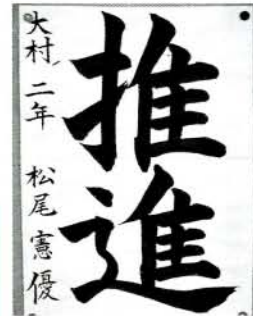 推進
大村 二年 松尾憲優